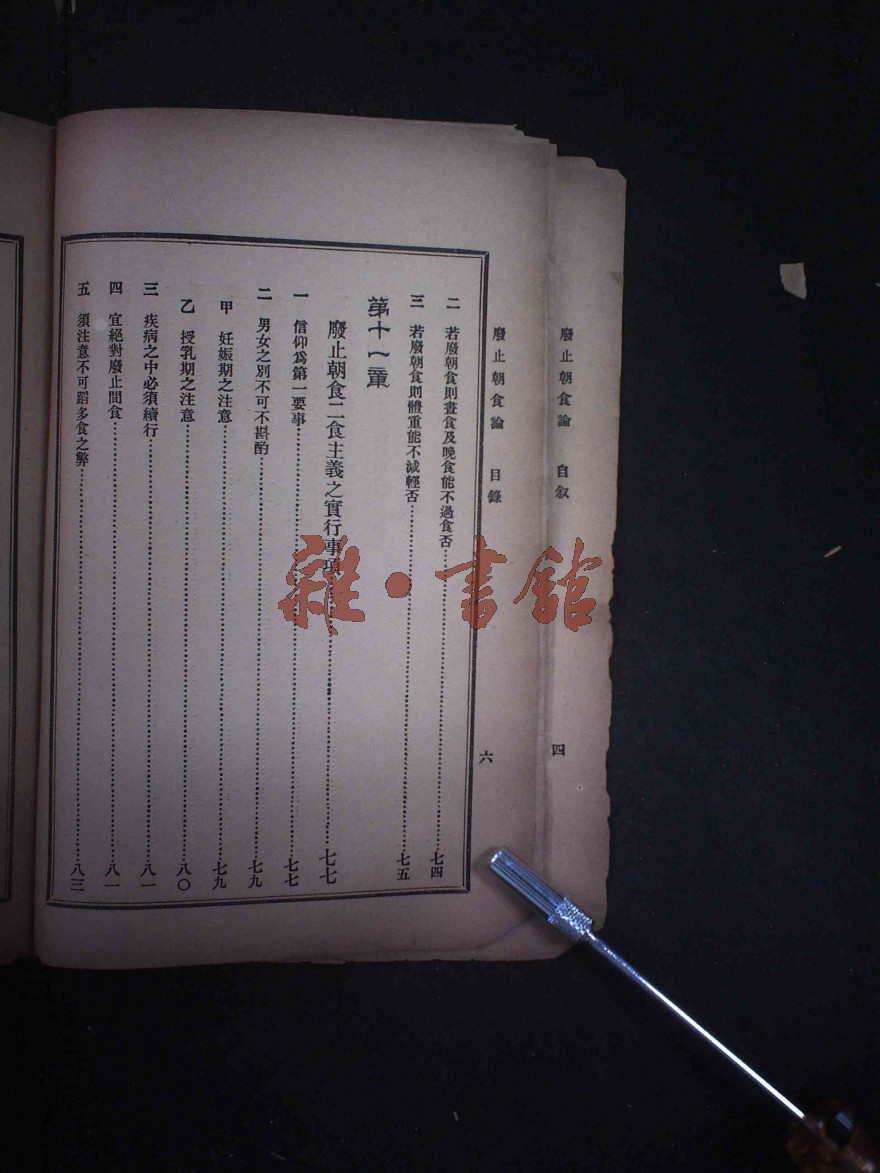 廢止朝食論 自敘
四
廢止朝食論 目錄
六
二 若廢朝食則晝食及晚食能不過食否……七四
三 若廢朝食則體重能不減輕否……七五
第十一章
廢止朝食二食主義之實行事項……七七
一 信仰爲第一要事……七七
二 男女之別不可不斟酌……七九
甲 妊娠期之注意……七九
乙 授乳期之注意……八〇
三 疾病之中必須續行……八一
四 宜絕對廢止間食……八一
五 須注意不可蹈多食之弊……八三
雜·書館